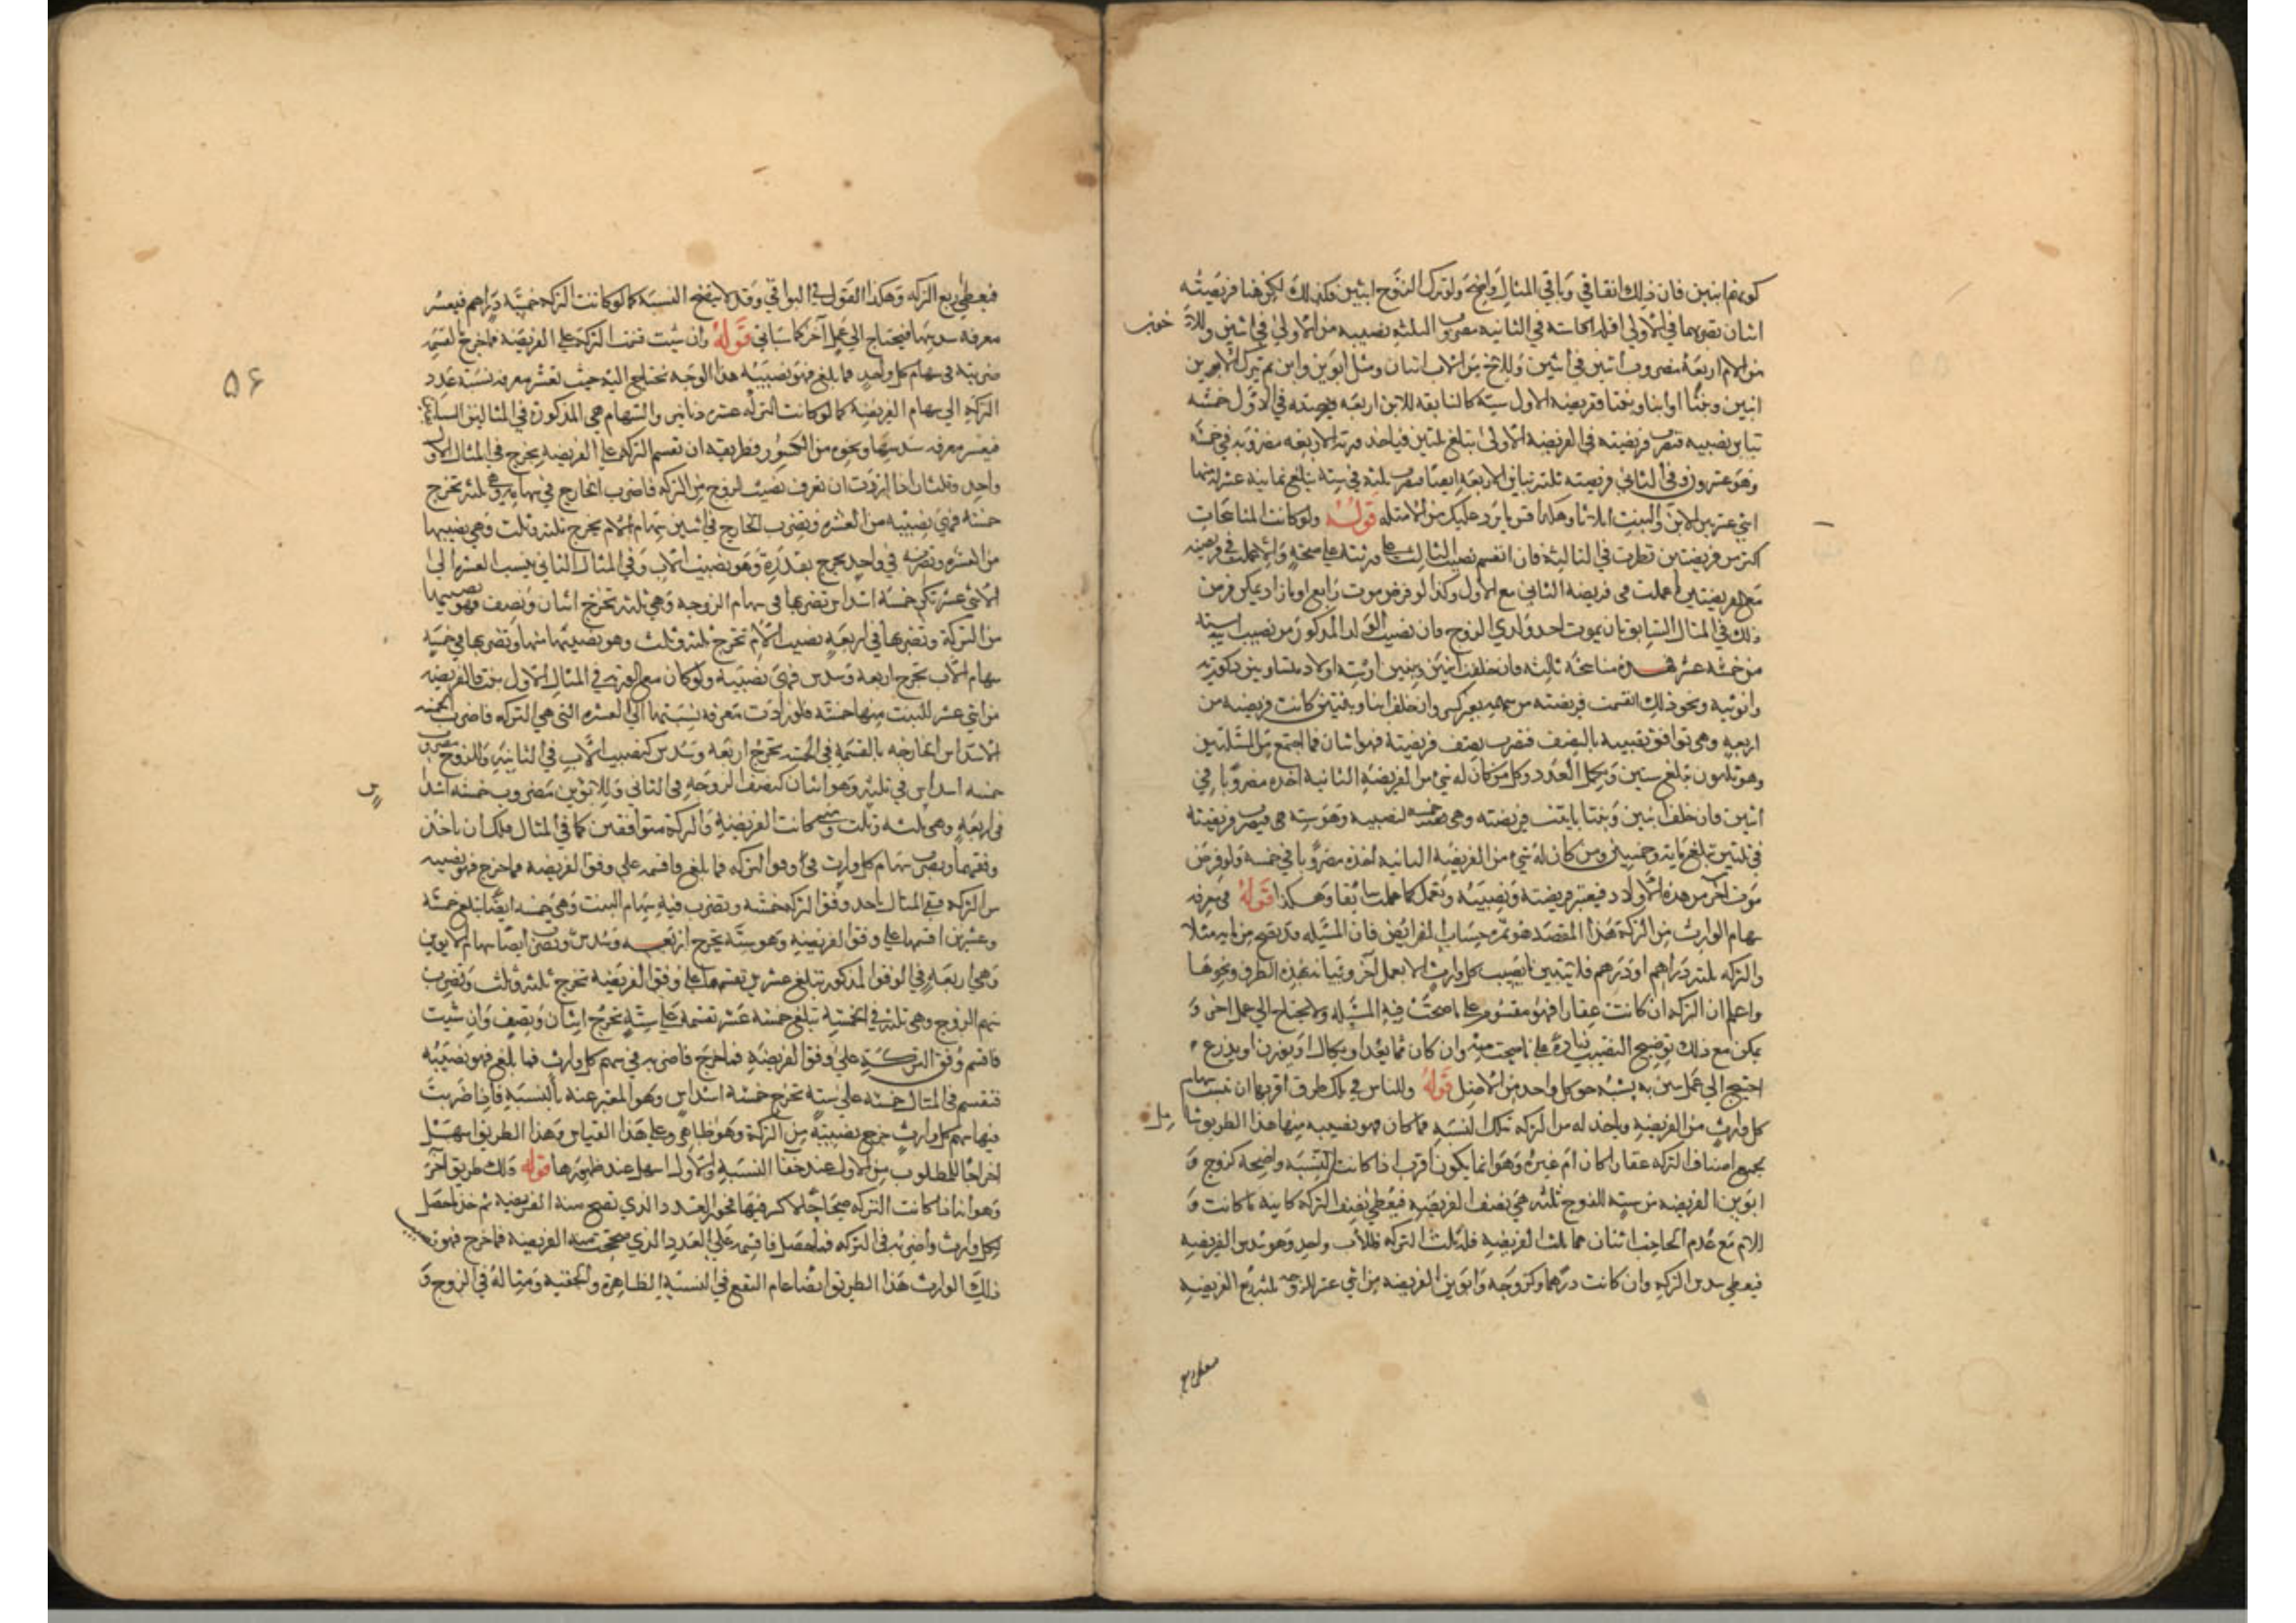 كونهم ابنين فان ذلك اتفاقي وباقي المثال واضح ولو ترك الزوج ابنين وكذلك لكن هنا فريضته
اثنان تضربهما في الاولى فللاخ في الثانية مضروب الثلثه نصيبه من الاولى في اثنين وللاخ
من الام اربعة مضروب اثنين في اثنين وللاخ من الاب اثنان ومثل ابوين وابن ثم ترك الابن
ابنين وبنتا او ابنا وبنتا ففريضه الاول سته كالسابقه للابن اربعه وفريضته في الاول خمسه
تباين نصيبه فتضرب فريضته في الفريضه الاولى تبلغ ثلثين فياخذ ورثته الاربعه مضروبه في خمسه
وهو عشرون وفي الثاني فريضته ثلثه تباين الاربعه ايضا فتضرب ثلثه في سته يبلغ ثمانيه عشر لهم منها
اثني عشر بين الابن والبنت اثلاثا وهكذا قس ما يرد عليك من الامثله قوله ولو كانت المناسخات
اكثر من فريضتين نظرت في الثالثة فان انقسم نصيب الثالث على ورثته على صحة والا عملت في فريضته
مع الفريضتين ما عملت في فريضه الثاني مع الاول وكذا لو فرض موت رابع او ما زاد يمكن فرض
ذلك في المثال السابق بان يموت احد ولدي الزوج فان نصيب الولد المذكور من نصيب ابيه سته
من خمسه عشر فهذه مناسخه ثالثه فان خلف ابنين وبنتين او سته اولاد متساوين ذكوريه
وانوثيه ونحو ذلك انقسمت فريضته من سهمه بغير كسر وان خلف ابنا وبنتين كانت فريضه من
اربعه وهي توافق نصيبه بالنصف فتضرب نصف فريضته فهو اثنان فما اجتمع من المسئلتين
وهو ثلثون تبلغ ستين وبجملة العدد وكل من كان له شئ من الفريضه الثانية اخذه مضروبا في
اثنين وان خلف ابنين وبنتا باينت فريضته وهي خمسه لنصيبه وهو سته فيضرب فريضته
في ثلثين تبلغ مايه وخمسين ومن كان له شئ من الفريضه الثانيه اخذه مضروبا في خمسه ولو فرض
موت اخر من هذه الاولاد فيعتبر فريضته ونصيبه وتعمل كما عملت سابقا وهكذا قوله في معرفه
سهام الوارث من التركة هذا المقصد هو ثمرة حساب الفرائض فان المسئله قد تصح من مايه مثلا
والتركه ثلثه دراهم او درهم فلا يتبين نصيب كل وارث الا بعمل آخر وتبيانه بهذه الطرق ونحوها
واعلم ان التركه ان كانت عقارا فهو مقسوم على ما صحت فيه المسئله ولا يحتاج الى عمل اخر و
يمكن مع ذلك توضيح النصيب زيادة على ما صحت منه وان كان مما يعد او يكال او يوزن او يذرع
احتيج الى عمل يتبين به نسبه حق كل واحد من الاصل قوله وللناس في ذلك طرق اقربها ان تنسب سهام
كل وارث من الفريضه وياخذ له من التركه تلك النسبه فما كان فهو نصيبه منها هذا الطريق شامل
بجميع اصناف التركه عقارا كان ام غيره وهو انما يكون اقرب اذا كانت النسبه واضحه كزوج و
ابوين الفريضه من سته للزوج ثلثه هي نصف الفريضه فيعطى نصف التركه كاينه ما كانت و
للام مع عدم الحاجب اثنان هما ثلث الفريضه فلها ثلث التركه وللاب واحد وهو سدس الفريضه
فيعطى سدس التركه وان كانت درهما وكزوجه وابوين الفريضه من اثني عشر للزوجه ثلثه ربع الفريضه
٥٦
فيعطى ربع التركه وهكذا القول في البواقي وقد لا يتضح النسبه كما لو كانت التركه خمسه دراهم فيعسر
معرفه سدسها فيحتاج الى عمل آخر كما سياتي قوله وان شئت قسمت التركة على الفريضه فما خرج بالقسمه
ضربته في سهام كل واحد فما بلغ فهو نصيبه هذا الوجه يحتاج اليه حيث تعسر معرفه نسبه عدد
التركه الى سهام الفريضه كما لو كانت التركه عشره دنانير والسهام هي المذكورة في المثالين السابقين
فيعسر معرفه سدسها ونحوه من الكسور وطريقه ان تقسم التركه على الفريضه يخرج في المثال الاول
واحد وثلثان اذا اردت ان تعرف نصيب الزوج من التركه فاضرب الخارج في سهامه وهي ثلثه تخرج
خمسه فهي نصيبه من العشره وتضرب الخارج في اثنين سهام الام يخرج ثلثه وثلث وهي نصيبها
من العشره وتضربه في واحد يخرج بقدره وهو نصيب الاب وفي المثال الثاني ينسب العشره الى
الاثني عشر تكن خمسة اسداس تضربها في سهام الزوجه وهي ثلثه تخرج اثنان ونصف وهو نصيبها
من التركة وتضربها في اربعه نصيب الام تخرج ثلثه وثلث وهو نصيبها منها وتضربها في خمسه
سهام الاب تخرج اربعه وسدس فهي نصيبه ولو كان مع الابوين في المثال الاول بنت فالفريضه
من اثني عشر للبنت منها خمسه فلو اردت معرفه نسبتها الى العشره التي هي التركه فاضرب الخمسه
الاسداس الخارجه بالقسمه في الخمسه تخرج اربعه وسدس كنصيب الاب في الثانيه وللزوج مضروب
خمسه اسداس في ثلثه وهو اثنان ونصف كالزوجه في الثاني وللابوين مضروب خمسه اسداس
في اربعه وهي ثلثه وثلث ومتى كانت الفريضه والتركة متوافقين كما في المثال فلك ان تاخذ
وفقهما وتضرب سهام كل وارث في وفق التركه فما بلغ فاقسمه على وفق الفريضه فما خرج فهو نصيبه
من التركه ففي المثال تاخذ وفق التركه خمسه وتضرب فيه سهام البنت وهي خمسه ايضا تبلغ خمسه
وعشرين اقسمها على وفق الفريضه وهو سته يخرج اربعه وسدس وتضرب ايضا سهام الابوين
وهي اربعه في الوفق المذكور تبلغ عشرين تقسمها على وفق الفريضه تخرج ثلثه وثلث وتضرب
سهم الزوج وهي ثلثه في الخمسة تبلغ خمسه عشر تقسمه على سته تخرج اثنان ونصف وان شئت
فاقسم وفق التركة على وفق الفريضه فما خرج فاضربه في سهم كل وارث فما بلغ فهو نصيبه
فتقسم في المثال خمسه على سته تخرج خمسه اسداس وهو المعبر عنه بالنسبه فاذا ضربت
فيها سهم كل وارث خرج نصيبه من التركة وهو ظاهر وعلى هذا القياس وهذا الطريق اسهل
اخراجا للمطلوب من الاول عند خفاء النسبه والاول اسهل عند ظهورها قوله ولك طريق آخر
وهو انه اذا كانت التركه صحاحا لا كسر فيها فخذ العدد الذي تصح منه الفريضه ثم خذ ما حصل
لكل وارث واضربه في التركه فما حصل فاقسمه على العدد الذي صحت منه الفريضه فما خرج فهو نصيب
ذلك الوارث هذا الطريق ايضا عام النفع في النسبة الظاهرة والخفيه ومثاله في الزوج و